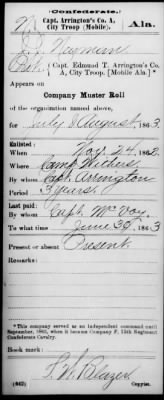 Confederate.
Capt. Arrington's Co. A,
City Troop (Mobile).
Ala.
Neyman
Pvt., Capt. Edmund T. Arrington's Co.
A, City Troop, [Mobile Ala.]*
Appears on
Company Muster Roll
of the organization named above,
for July & August, 1863
Enlisted:
When Nov. 24, 1862
Where Camp Withers
By whom Capt. Arrington
Period 3 years.
Last paid:
By whom Capt. McVoy
To what time June 30, 1863
Present or absent Present.
Remarks:
*This company served as an independent command until
September, 1863, when it became Company F, 15th Regiment
Confederate Cavalry.
Book mark:
(642)
Copyist.